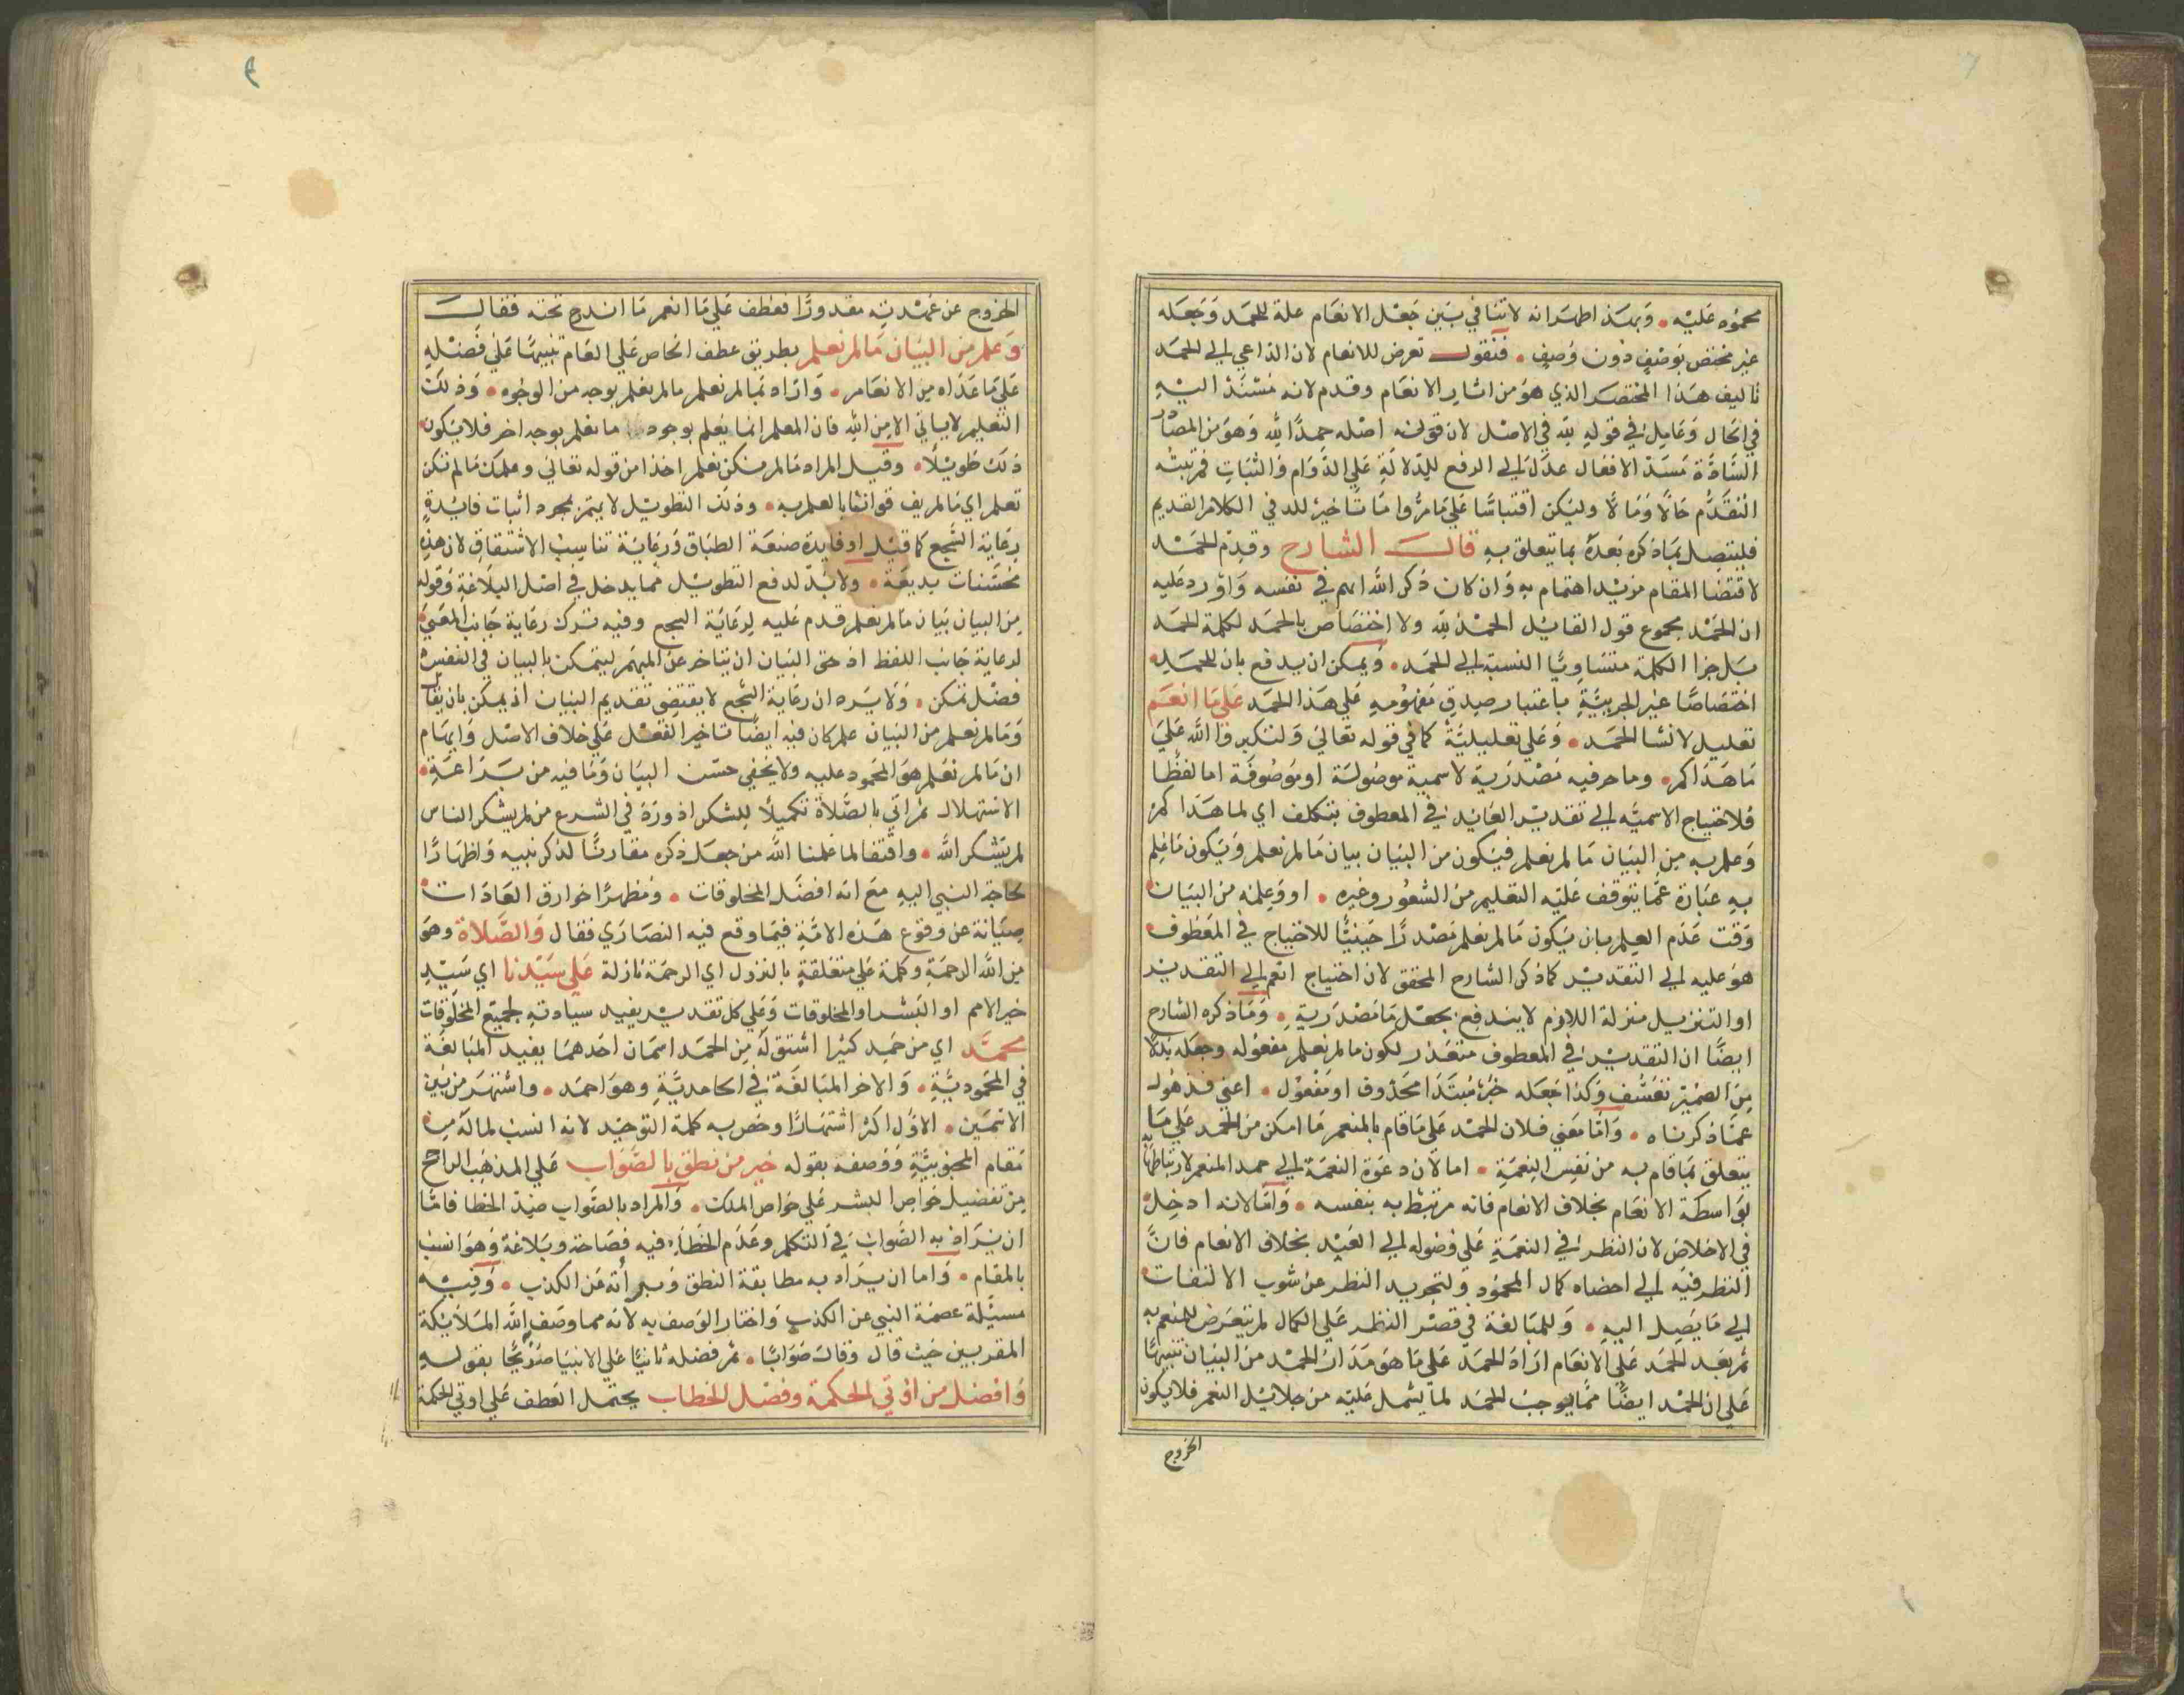 محموده عليه • وبهذا ظهر انه لا تنافي بين جعل الانعام علة للحمد وجعله
غير مختص بوصف دون وصف • فنقول تعرض للانعام لان الداعي الى الحمد
تاليف هذا المختصر الذي هو من اثار الانعام وقدم لانه مسند اليه
في الحال وعامل في قوله لله في الاصل لان قولنه اصله حمدا لله وهو من المصادر
السادة مسد الافعال عدل الى الرفع للدلالة علي الدوام والثبات فمرتبته
التقدم حالا ومالا وليكن اقتباسا علي ما مر واما تاخير لله في الكلام القديم
فليتصل بما ذكره بعده بما يتعلق به قال الشارح وقدم الحمد
لاقتضا المقام مزيد اهتمام به وان كان ذكر الله اهم في نفسه واورد عليه
ان الحمد مجموع قول القايل الحمد لله ولا اختصاص بالحمد لكلمة الحمد
بل جزا الكلمة متساويا النسبة الى الحمد • ويمكن ان يدفع بان للحمد
اختصاصا غير الجزيية باعتبار صدق مفهومه علي هذا الحمد علي ما انعم
تعليل لانشا الحمد • وعلي تعليلية كما في قوله تعالي ولتكبروا الله علي
ما هداكم • وما حرفيه مصدرية لا اسمية موصولة او موصوفة اما لفظا
فلاحتياج الاسمية الى تقدير العايد في المعطوف بتكلف اي لما هداكم
وعلم به من البيان ما لم نعلم فيكون من البيان بيان ما لم نعلم ويكون ما علم
به عبارة عما يتوقف عليه التعليم من الشعور وغيره • او وعلمه من البيان
وقت عدم العلم بان يكون ما لم نعلم مصدرا حينيا للاحتياج في المعطوف
هو عليه الى التقدير كما ذكر الشارح المحقق لان احتياج انعم الى التقدير
او التنزيل منزلة اللازم لا يندفع بجعل ما مصدرية • وما ذكره الشارح
ايضا ان التقدير في المعطوف متعذر لكون ما لم نعلم مفعوله وجعله بدلا
من الضمير تعسف وكذا جعله خبر مبتدا محذوف او مفعول • اعني فذهول
عما ذكرناه • واما معني فلان الحمد علي ما قام بالمنعم ما امكن من الحمد علي ما
يتعلق بما قام به من نفس النعمة • اما لان دعوة النعمة الى حمد المنعم لارتباطها به
بواسطة الانعام بخلاف الانعام فانه مرتبط به بنفسه • واما لانه ادخل
في الاخلاص لان النظر في النعمة علي وصوله الى العبد بخلاف الانعام فان
النظر فيه الى احضاه كمال المحمود ولتجريد النظر عن شوب الالتفات
الى ما يصل اليه • وللمبالغة في قصر النظر علي الكمال لم يتعرض للمنعم به
ثم بعد الحمد علي الانعام اراد الحمد علي ما هو مدار الحمد من البيان تنبيها
علي ان الحمد ايضا مما يوجب الحمد لما يشمل عليه من جلايل النعم فلا يكون
الخروج
الخروج عن عهدته مقدورا فعطف علي ما انعم ما اندرج تحته فقال
وعلم من البيان ما لم نعلم بطريق عطف الخاص علي العام تنبيها علي فضله
علي ما عداه من الانعام • واراد بما لم نعلم ما لم نعلم بوجه من الوجوه • وذلك
التعليم لا ياتي الا من الله فان المعلم انما يعلم بوجوه ما نعلم بوجه اخر فلا يكون
ذلك طويلا • وقيل المراد ما لم نكن نعلم اخذا من قوله تعالي وعلمك ما لم تكن
تعلم اي ما لم يف قوانا بالعلم به • وذلك التطويل لا يتم بمجرد اثبات فايدة
رعاية السجع كما قيل او فايدة صنعة الطباق ورعاية تناسب الاشتقاق لان هذه
محسنات بديعة • ولا بد لدفع التطويل مما يدخل في اصل البلاغة وقوله
من البيان بيان ما لم نعلم قدم عليه لرعاية السجع وفيه ترك رعاية جانب المعني
لرعاية جانب اللفظ اذ حق البيان ان يتاخر عن المبهم ليتمكن بالبيان في النفس
فضل تمكن • ولا يرد ان رعاية السجع لا يقتضي تقديم البيان اذ يمكن بان يقال
وما لم نعلم من البيان علم كان فيه ايضا تاخير الفعل علي خلاف الاصل وايهام
ان ما لم نعلم هو المحمود عليه ولا يخفي حسن البيان وما فيه من براعة
الاستهلال ثم اتي بالصلاة تكميلا للشكر اذ ورد في الشرع من لم يشكر الناس
لم يشكر الله • واقتفا لما علمنا الله من جعل ذكره مقارنا لذكر نبيه واظهارا
لحاجة النبي اليه مع انه افضل المخلوقات • ومظهرا خوارق العادات
صيانة عن وقوع هذه الامة فيما وقع فيه النصاري فقال والصلاة وهو
من الله الرحمة وكلمة علي متعلقة بالنزول اي الرحمة نازلة علي سيدنا اي سيد
خير الامم او البشر او المخلوقات وعلي كل تقدير يفيد سيادته لجميع المخلوقات
محمد اي من حميد كثيرا اشتق له من الحمد اسمان احدهما يفيد المبالغة
في المحمودية • والاخر المبالغة في الحامدية وهو احمد • واشتهر من بين
الاسمين • الاول اكثر اشتهارا وخص به كلمة التوحيد لانه انسب لما له من
مقام المحبوبية ووصفه بقوله خير من نطق بالصواب علي المذهب الراجح
من تفضيل خواص البشر علي خواص الملك • والمراد بالصواب ضد الخطا فاما
ان يراد به الصواب في التكلم وعدم الخطا فيه فصاحة وبلاغة وهو انسب
بالمقام • واما ان يراد به مطابقة النطق وبراته عن الكذب • وفيه
مسئلة عصمة النبي عن الكذب واختار الوصف به لانه مما وصف الله الملايكة
المقربين حيث قال وقال صوابا • ثم فضله ثانيا علي الانبيا صريحا بقوله
وافضل من اوتي الحكمة وفصل الخطاب يحتمل العطف علي اوتي الحكمة